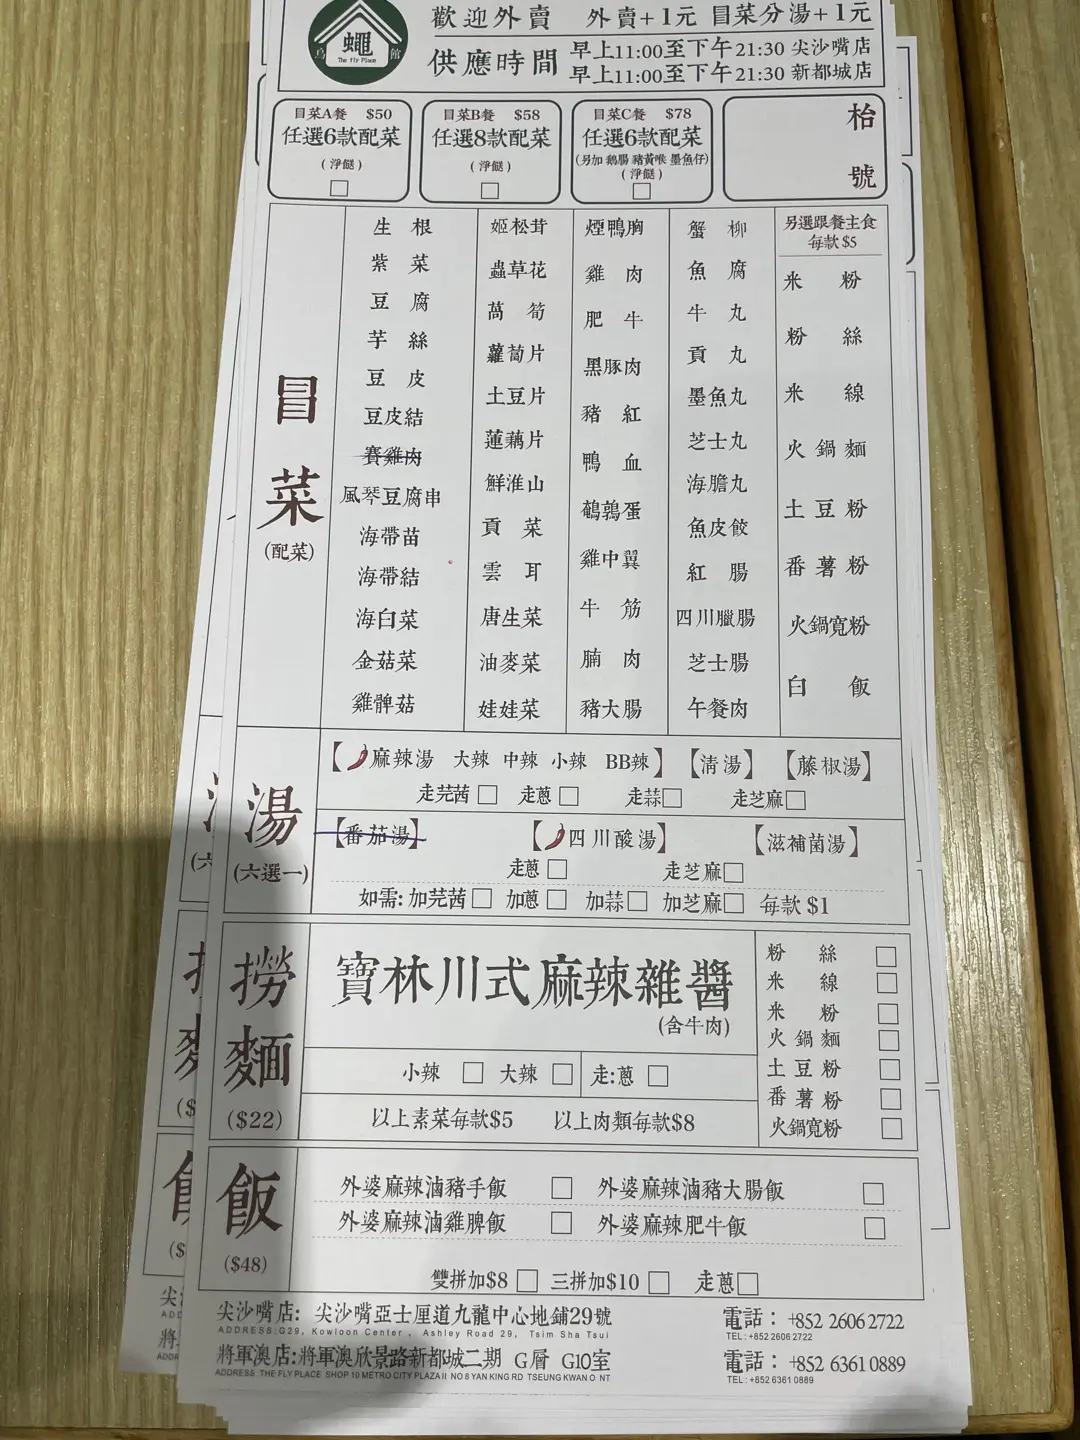 歡迎外賣 外賣+1元 冒菜分湯+1元
蠅
The fly Place
館
供應時間
早上11:00至下午21:30 尖沙嘴店
早上11:00至下午21:30 新都城店
冒菜A餐 $50
任選6款配菜
(淨餸)
冒菜B餐 $58
任選8款配菜
(淨餸)
冒菜C餐 $78
任選6款配菜
(另加 鵝腸 豬黃喉 墨魚仔)
(淨餸)
枱號
冒菜
(配菜)
生根
紫菜
豆腐
芋絲
豆皮
豆皮結
賽雞肉
風琴豆腐串
海帶苗
海帶結
海白菜
金菇菜
雞髀菇
姬松茸
蟲草花
萵筍
蘿蔔片
土豆片
蓮藕片
鮮淮山
貢菜
雲耳
唐生菜
油麥菜
娃娃菜
煙鴨胸
雞肉
肥牛
黑豚肉
豬紅
鴨血
鵪鶉蛋
雞中翼
牛筋
腩肉
豬大腸
蟹柳
魚腐
牛丸
貢丸
墨魚丸
芝士丸
海膽丸
魚皮餃
紅腸
四川臘腸
芝士腸
午餐肉
另選跟餐主食
每款 $5
米粉
粉絲
米線
火鍋麵
土豆粉
番薯粉
火鍋寬粉
白飯
湯
(六選一)
【麻辣湯 大辣 中辣 小辣 BB辣】 【清湯】 【藤椒湯】
走芫茜 走蔥 走蒜 走芝麻
【番茄湯】 【四川酸湯】 【滋補菌湯】
走蔥 走芝麻
如需: 加芫茜 加蔥 加蒜 加芝麻 每款 $1
撈麵
($22)
寶林川式麻辣雜醬
(含牛肉)
小辣 大辣 走:蔥
以上素菜每款$5 以上肉類每款$8
粉絲
米線
米粉
火鍋麵
土豆粉
番薯粉
火鍋寬粉
飯
($48)
外婆麻辣滷豬手飯 外婆麻辣滷豬大腸飯
外婆麻辣滷雞脾飯 外婆麻辣肥牛飯
雙拼加$8 三拼加$10 走蔥
尖沙嘴店: 尖沙嘴亞士厘道九龍中心地鋪29號 電話： +852 2606 2722
ADDRESS:G29, Kowloon Center , Ashley Road 29, Tsim Sha Tsui TEL : +852 2606 2722
將軍澳店:將軍澳欣景路新都城二期 G層 G10室 電話： +852 6361 0889
ADDRESS THE FLY PLACE SHOP 10 METRO CITY PLAZA II NO 8 YAN KING RD TSEUNG KWAN O NT TEL : +852 6361 0889